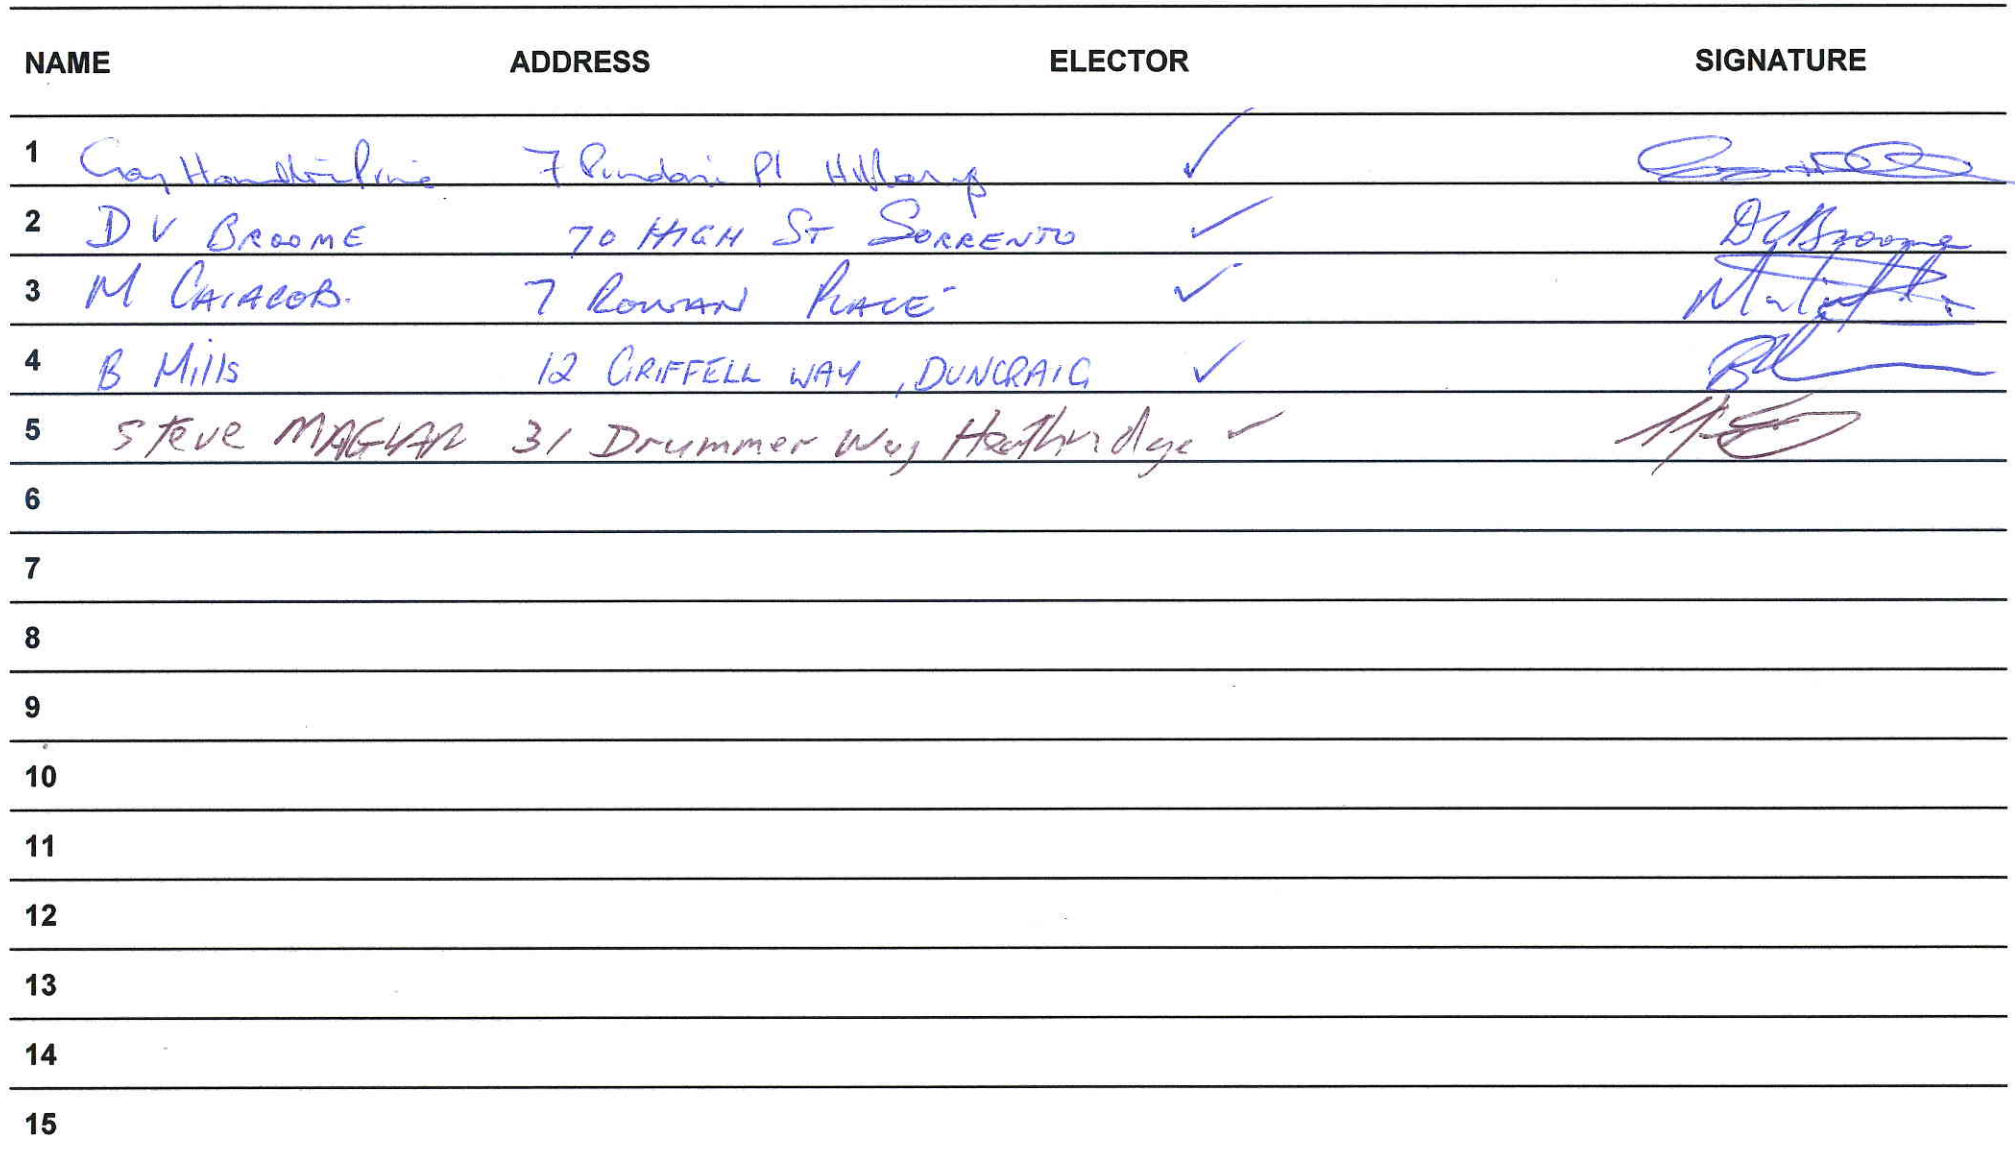 NAME ADDRESS ELECTOR SIGNATURE
1 7 Pl Hillarys ✓
2 D V BROOME 70 HIGH ST SORRENTO ✓ DVBroome
3 M CAIACOB. 7 ROWAN PLACE ✓
4 B Mills 12 GRIFFELL WAY, DUNCRAIG ✓
5 Steve MAGYAR 31 Drummer Way Heathridge ✓
6
7
8
9
10
11
12
13
14
15